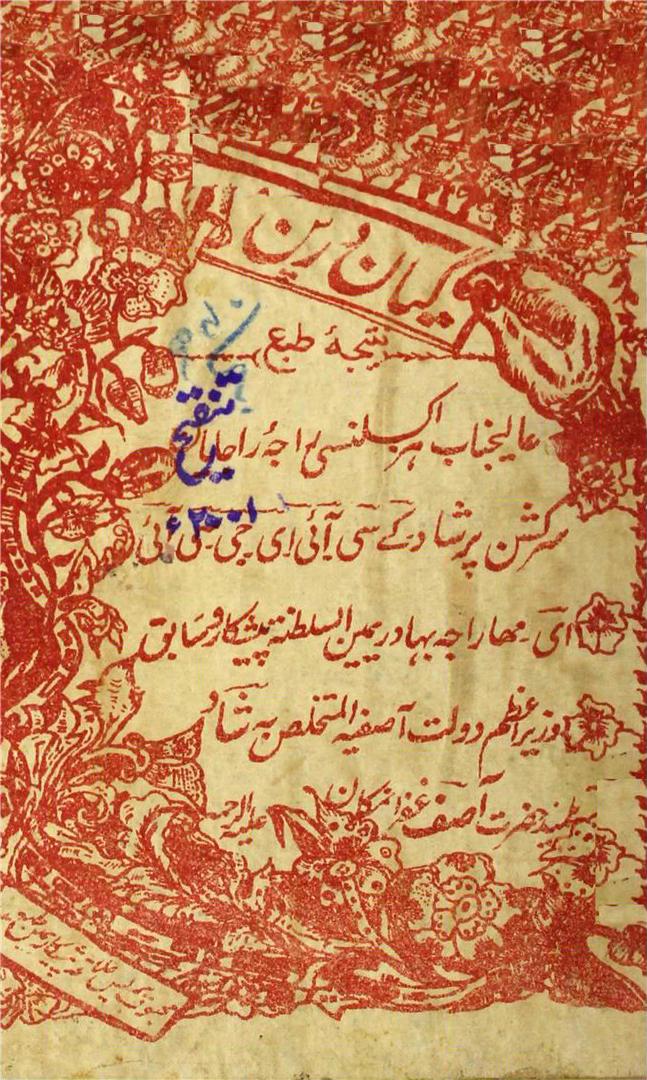 گیان درپن
نتیجۂ طبع
عالیجناب ہر اکسلنسی راجۂ راجایان
سرکشن پرشاد کے سی آئی ای جی سی آئی
ای مہاراجہ بہادر یمین السلطنۃ پیشکار و سابق
وزیر اعظم دولت آصفیہ المتخلص بہ شاد
تلمیذ حضرت آصف غفرانمکان علیہ الرحمہ
تنقیح
۲۰۰۱ء